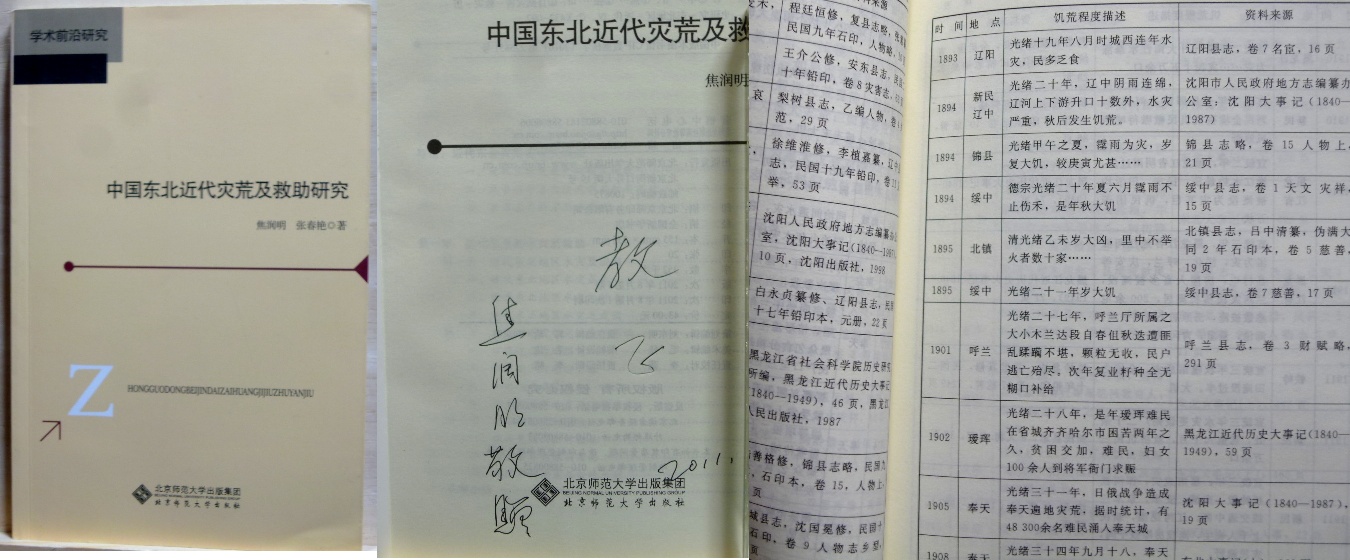 学术前沿研究
中国东北近代灾荒及救助研究
焦润明 张春艳◎著
Z
HONGGUODONGBEIJINDAIZAIHUANGJIJIUZHUYANJIU
北京师范大学出版集团
BEIJING NORMAL UNIVERSITY PUBLISHING GROUP
北京师范大学出版社
中国东北近代灾荒及救
焦润明
焦润明敬赠
2011.
北京师范大学出版集团
BEIJING NORMAL UNIVERSITY PUBLISHING GROUP
北京师范大学出版社
程廷恒修,复县志略,
民国九年石印,人物略,
王介公修,安东县志,民
十年铅印,卷8灾害志,
梨树县志,乙编人物,
范,29页
徐维淮修,李植嘉纂,辽中
志,民国十九年铅印,
举,53页
沈阳人民政府地方志编纂办
室,沈阳大事记(1840—1987)
10页,沈阳出版社,1998
白永贞纂修、辽阳县志,
十七年铅印本,元册,22页
黑龙江省社会科学院历史研究
所编,黑龙江近代历史大事记
(1840—1949),46页,黑龙江
人民出版社,1987
善格修,锦县志略,民国九
,石印本,卷15,人物上,
页
城县志,沈国冕修,民国十
石印,卷9人物志乡望,
页
时间 地点 饥荒程度描述 资料来源
1893 辽阳 光绪十九年八月时城西连年水 辽阳县志,卷7名宦,16页
灾,民多乏食
1894 新民 辽中 光绪二十年,辽中阴雨连绵, 沈阳市人民政府地方志编纂办
辽河上下游升口十数外,水灾 公室:沈阳大事记(1840—
严重,秋后发生饥荒。 1987)
1894 锦县 光绪甲午之夏,霪雨为灾,岁 锦县志略,卷15人物上,
复大饥,较庚寅尤甚…… 21页
1894 绥中 德宗光绪二十年夏六月霪雨不 绥中县志,卷1天文 灾祥,
止伤禾,是年秋大饥 15页
1895 北镇 清光绪乙未岁大凶,里中不举 北镇县志,吕中清纂,伪满大
火者数十家…… 同2年石印本,卷5慈善,
19页
1895 绥中 光绪二十一年岁大饥 绥中县志,卷7慈善,17页
1901 呼兰 光绪二十七年,呼兰厅所属之 呼兰县志,卷3财赋略,
大小木兰达段自春但秋迭遭匪 291页
乱蹂躏不堪,颗粒无收,民户
逃亡殆尽。次年复业籽种全无
糊口补给
1902 瑷珲 光绪二十八年,是年瑷珲难民 黑龙江近代历史大事记(1840—
在省城齐齐哈尔市困苦两年之 1949),59页
久,贫困交加,难民,妇女
100余人到将军衙门求赈
1905 奉天 光绪三十一年,日俄战争造成 沈阳大事记(1840—1987),
奉天遍地灾荒,据时统计,有 19页
48 300余名难民涌入奉天城
1908 奉天 光绪三十四年九月十八,奉天